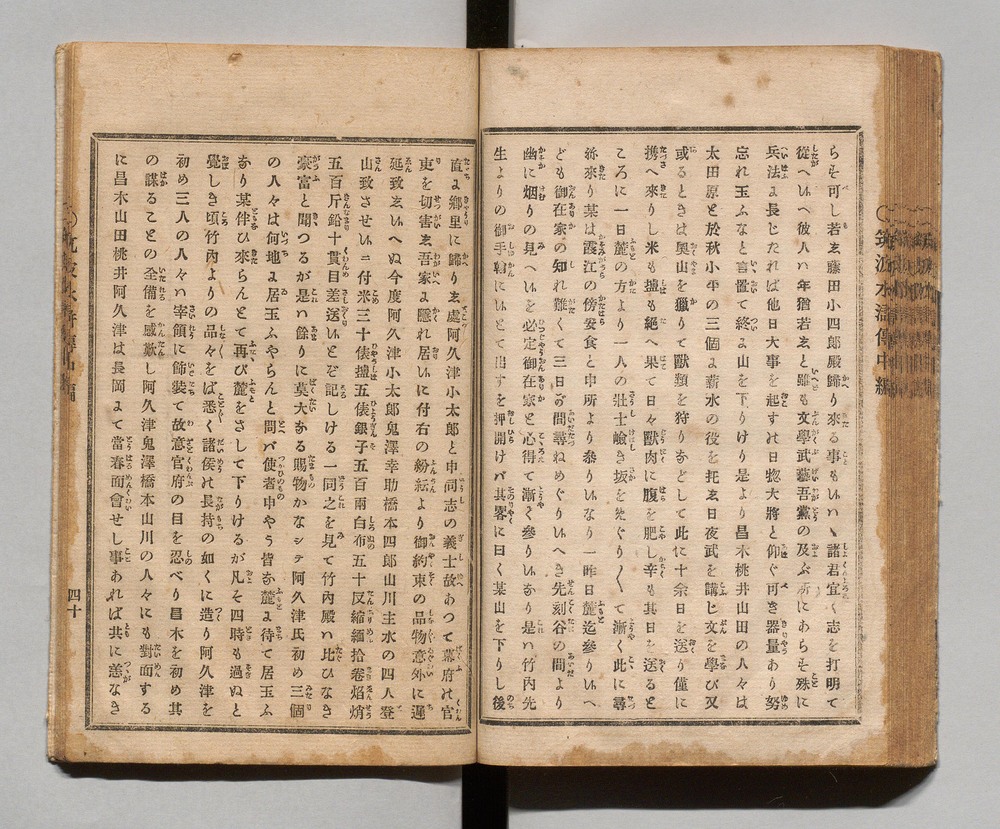 筑波水滸傳中編
らそ可し若ゑ藤田小四郎殿歸り來る事もいハヽ諸君宜く志を打明て
從へいへ彼人ハ年猶若ゑと雖も文學武藝吾黨の及ぶ所にあらそ殊に
兵法ゟ長じたれば他日大事を起す卋日惣大將と仰ぐ可き器量あり努
忘れ玉ふなと言置て終ゟ山を下りけり是より昌木桃井山田の人々は
太田原と於秋小平の三個ゟ薪水の役を托ゑ日夜武を講じ文を學び又
或るときは奧山を獵りて獸類を狩りなどして此に十余日を送り僅に
携へ來りし米も𪉩も絕へ果て日々獸肉に腹を肥し幸も其日を送ると
ころに一日麓の方より一人の壯士嶮き坂をたぐり〱て漸く此に尋
ね來り某は霞江の傍安食と申所より參りいなり一昨日麓迄參りいへ
ども御在家の知れ難くて三日の間尋ねめぐりいへき先刻谷の間より
幽に烟りの見へいを必定御在家と心得て漸く參りいなり是ハ竹內先
生よりの御手翰にいとて出すを押開けバ其畧に曰く某山を下りし後
直ゟ鄕里に歸りゑ處阿久津小太郎と申同志の義士故あつて幕府卋官
吏を切害ゑ吾家ゟ隱れ居いに付右の紛紜より御約束の品物意外に遲
延致ゑいへぬ今度阿久津小太郎鬼澤幸助橋本四郎山川主水の四人登
山致させいニ付米三十俵𪉩五俵銀子五百兩白布五十反縮緬拾卷焰焇
五百斤鉛十貫目差送いとぞ記しける一同之を見て竹內殿ハ比ひなき
豪富と聞つるが是ハ餘りに莫大なる賜物かなシテ阿久津氏初め三個
の人々は何地ゟ居玉ふやらんと問バ使者申やう皆な麓ゟ待て居玉ふ
なり某伴ひ來らんとて再び麓をさして下りけるが凡そ四時も過ぬと
覺しき頃竹內よりの品々をば悉く諸侯卋長持の如くに造り阿久津を
初め三人の人々ハ宰領に飾裝て故意官府の目を忍べり昌木を初め其
の謀ることの全備を感歎し阿久津鬼澤橋本山川の人々にも對面する
に昌木山田桃井阿久津は長岡ゟて當春面會せし事あれば共に恙なき
四十